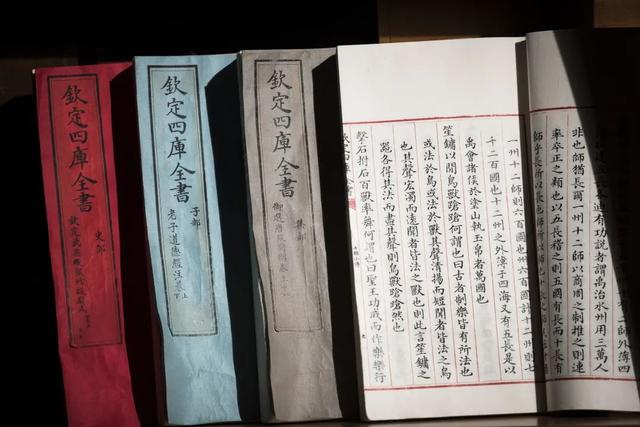 欽定四庫全書
史部
欽定武英殿聚珍版程式
欽定四庫全書
子部
老子道德經注 上下
欽定四庫全書
集部
師外薄四
迪有功說者謂禹治水州用三萬人
非也師猶長爾一州十二師以商周之制推之則連
率卒正之類也以五長稽之則五國有長而十長有
一州十二師則六百國也州六百國計十二州則七
千二百國也十二州之外薄于四海又有五長是以
禹會諸侯於塗山執玉帛者萬國也
笙鏞以間鳥獸蹌蹌何謂也曰古者制樂皆有所法也
或法於鳥或法於獸其聲清揚而短聞者皆法之鳥
也其聲宏濁而遠聞者皆法之獸也則此言笙鏞之
噐各得其法而盡其聲則鳥獸蹌蹌然也
擊石拊石百獸率舞何謂也曰聖王功成而作樂樂行